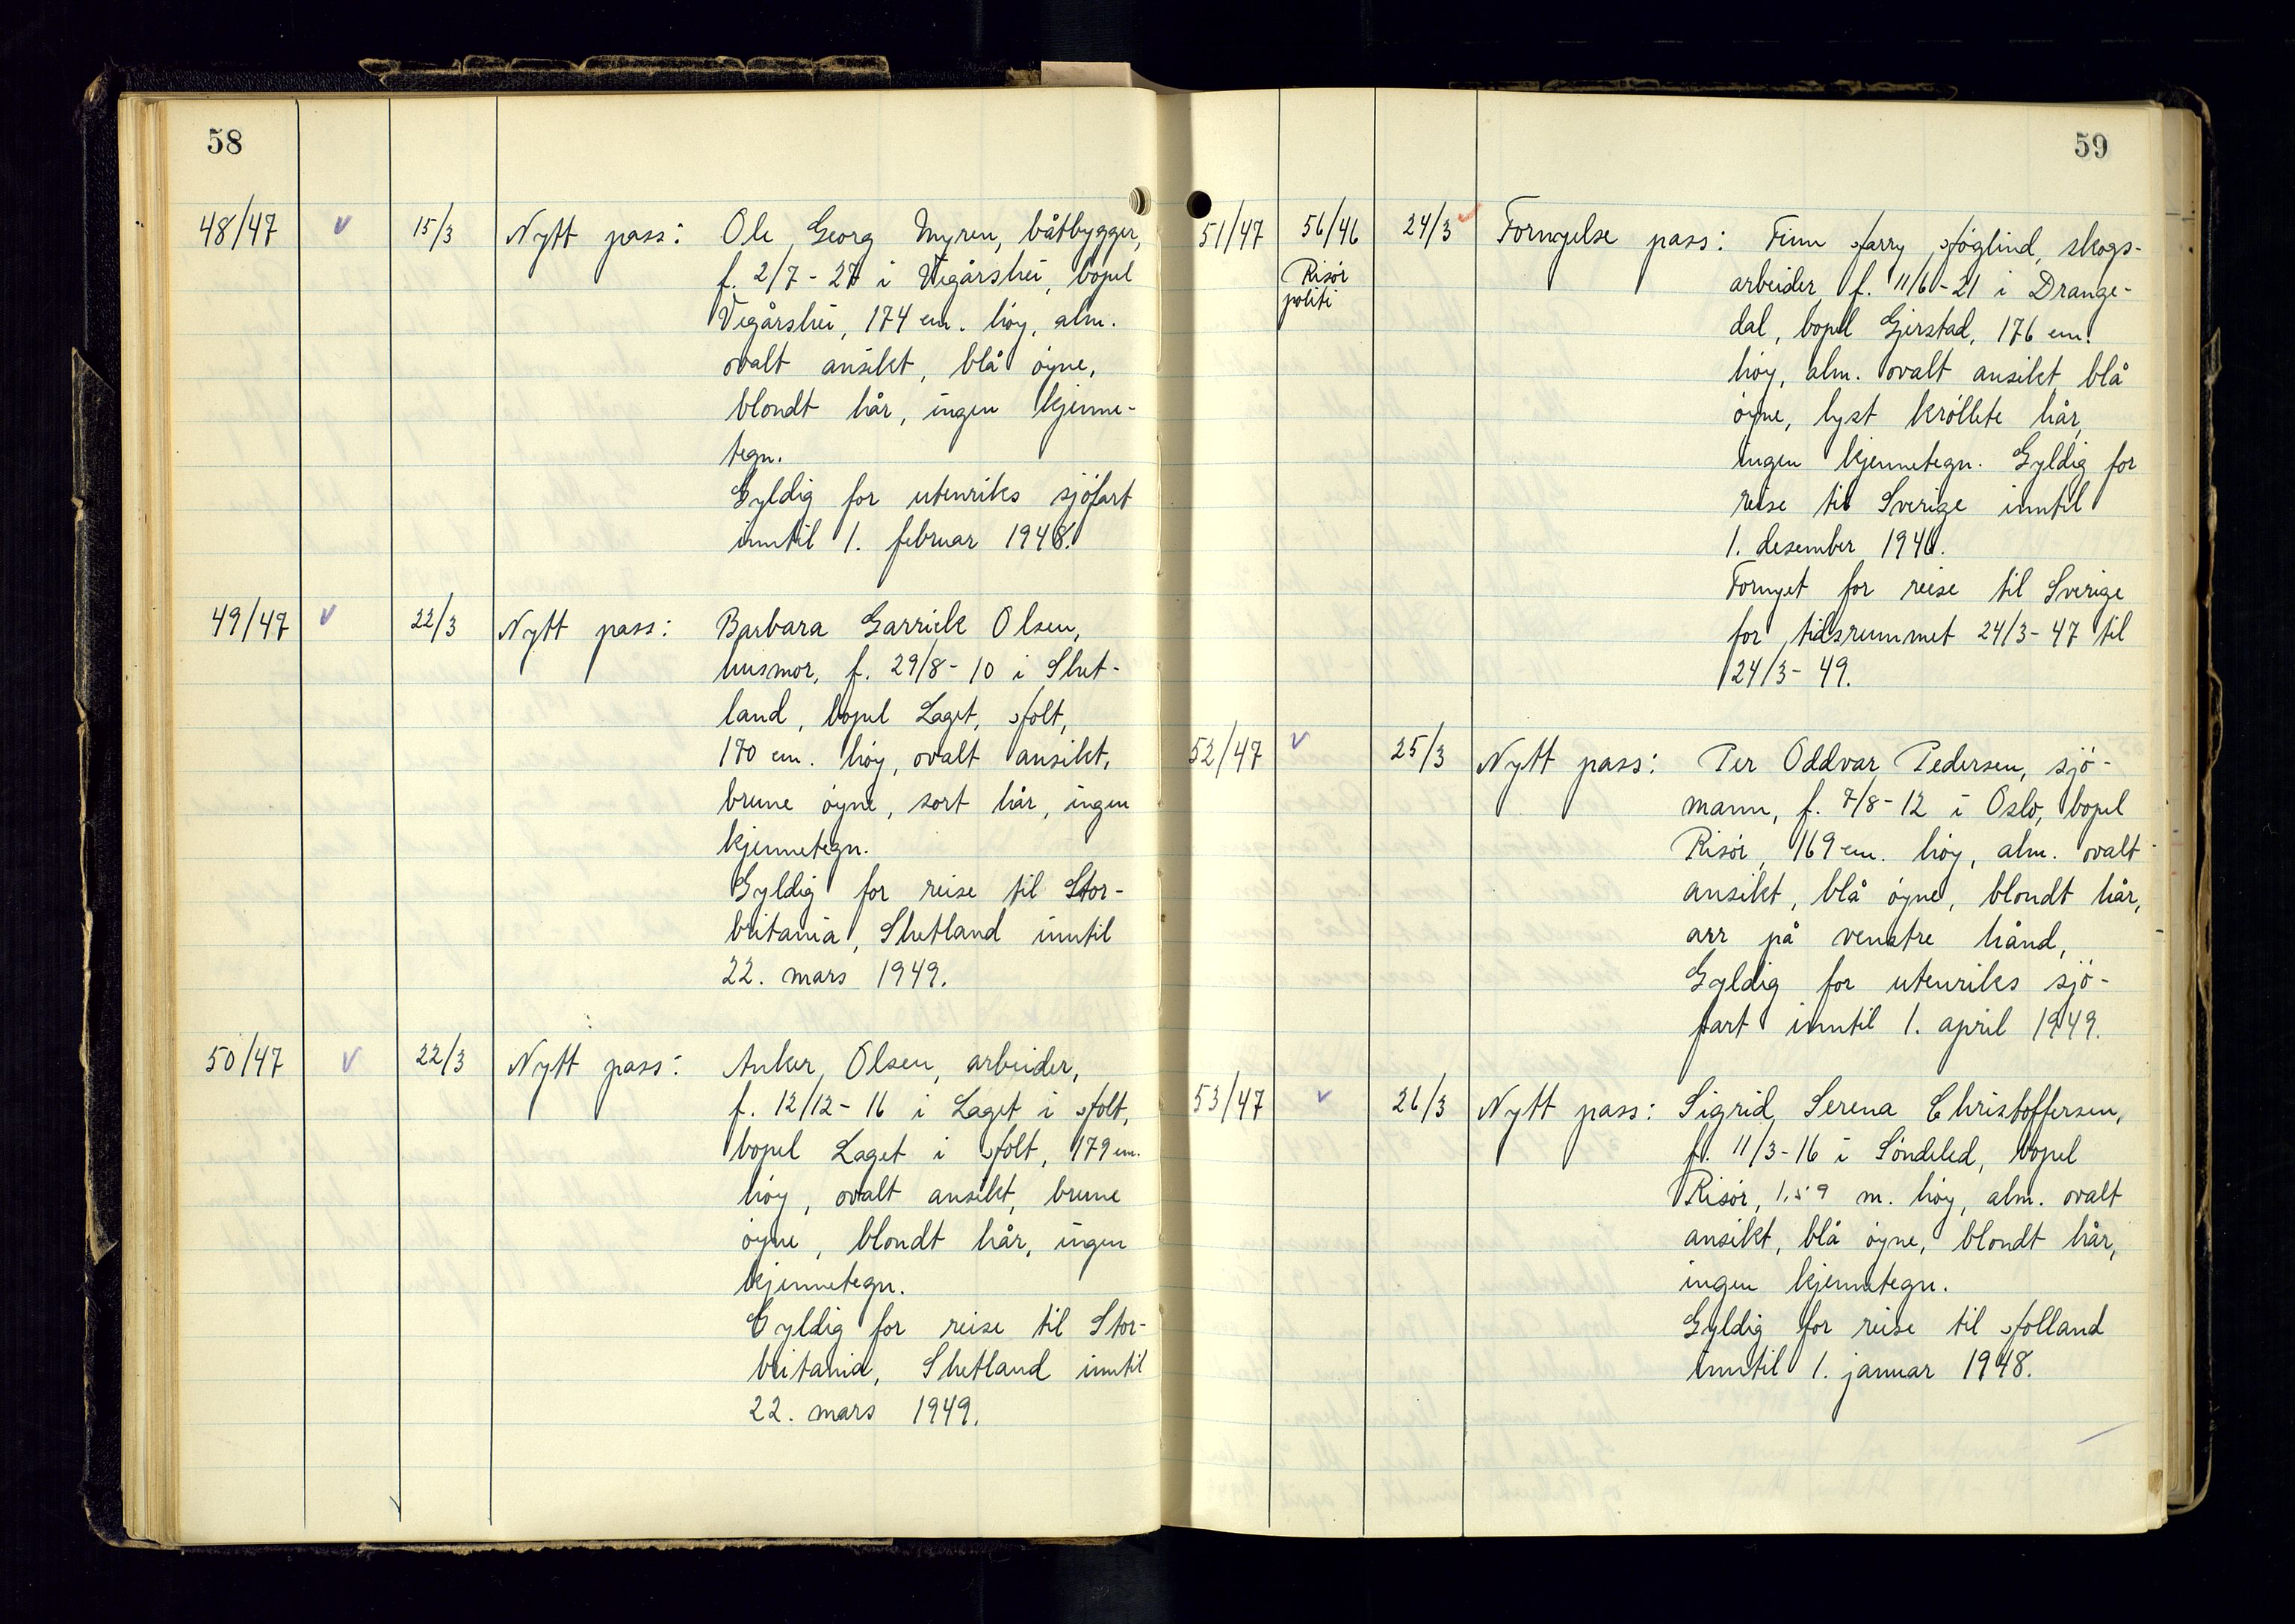 58
48/47 v 15/3 Nytt pass: Ole Georg Myren, båtbygger,
f. 2/7-27 i Vegårshei, bopel
Vegårshei, 174 cm. høy, alm.
ovalt ansikt, blå øyne,
blondt hår, ingen kjenne-
tegn.
Gyldig for utenriks sjøfart
inntil 1. februar 1948.
49/47 v 22/3 Nytt pass: Barbara Garrick Olsen,
husmor, f. 29/8-10 i Shet-
land, bopel Laget, Holt,
170 cm. høy, ovalt ansikt,
brune øyne, sort hår, ingen
kjennetegn.
Gyldig for reise til Stor-
britania, Shetland inntil
22. mars 1949.
50/47 v 22/3 Nytt pass: Anker Olsen, arbeider,
f. 12/12-16 i Laget i Holt,
bopel Laget i Holt, 179 cm.
høy, ovalt ansikt, brune
øyne, blondt hår, ingen
kjennetegn.
Gyldig for reise til Stor-
britania, Shetland inntil
22. mars 1949.
59
51/47 56/46 24/3 Fornyelse pass: Finn Harry Høglind, skogs-
Risør
politi
arbeider, f. 11/6-21 i Drange-
dal, bopel Gjerstad, 176 cm.
høy, alm. ovalt ansikt, blå
øyne, lyst krøllete hår,
ingen kjennetegn. Gyldig for
reise til Sverige inntil
1. desember 1946.
Fornyet for reise til Sverige
for tidsrummet 24/3-47 til
24/3-49.
52/47 v 25/3 Nytt pass: Per Oddvar Pedersen, sjø-
mann, f. 7/8-12 i Oslo, bopel
Risør, 169 cm. høy, alm. ovalt
ansikt, blå øyne, blondt hår,
arr på venstre hånd,
Gyldig for utenriks sjø-
fart inntil 1. april 1949.
53/47 v 26/3 Nytt pass: Sigrid Serena Christoffersen,
f. 11/3-16 i Søndeled, bopel
Risør, 1.59 m. høy, alm. ovalt
ansikt, blå øyne, blondt hår,
ingen kjennetegn.
Gyldig for reise til Holland
inntil 1. januar 1948.